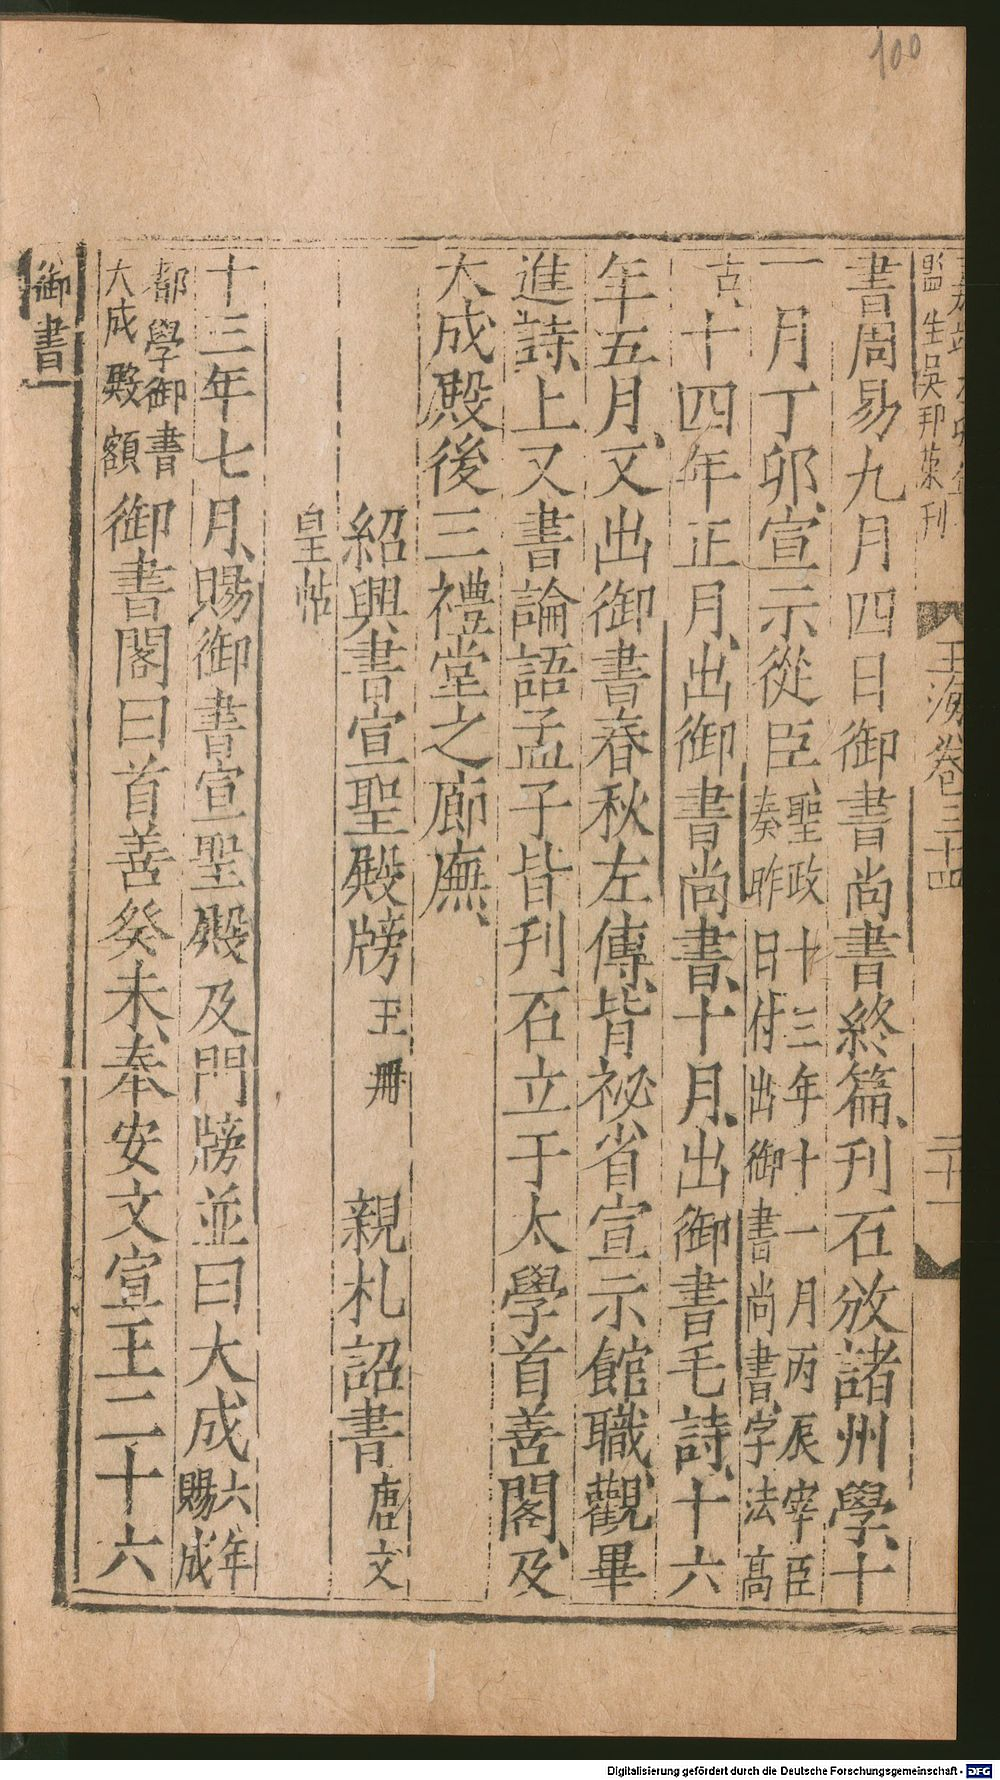 100
監生吳邦榮刊
玉海卷三十四
二十一
書周易九月四日御書尚書終篇刊石攽諸州學十
一月丁卯宣示從臣聖政十三年十一月丙辰宰臣奏昨日付出御書尚書字法高
古十四年正月出御書尚書十月出御書毛詩十六
年五月又出御書春秋左傳皆祕省宣示館職觀畢
進詩上又書論語孟子皆刊石立于太學首善閣及
大成殿後三禮堂之廊廡
紹興書宣聖殿牓 玉冊 親札詔書 唐文
皇帖
十三年七月賜御書宣聖殿及門牓並曰大成六年賜成
都學御書大成殿額御書閣曰首善癸未奉安文宣王二十六
御書
Digitalisierung gefördert durch die Deutsche Forschungsgemeinschaft - DFG